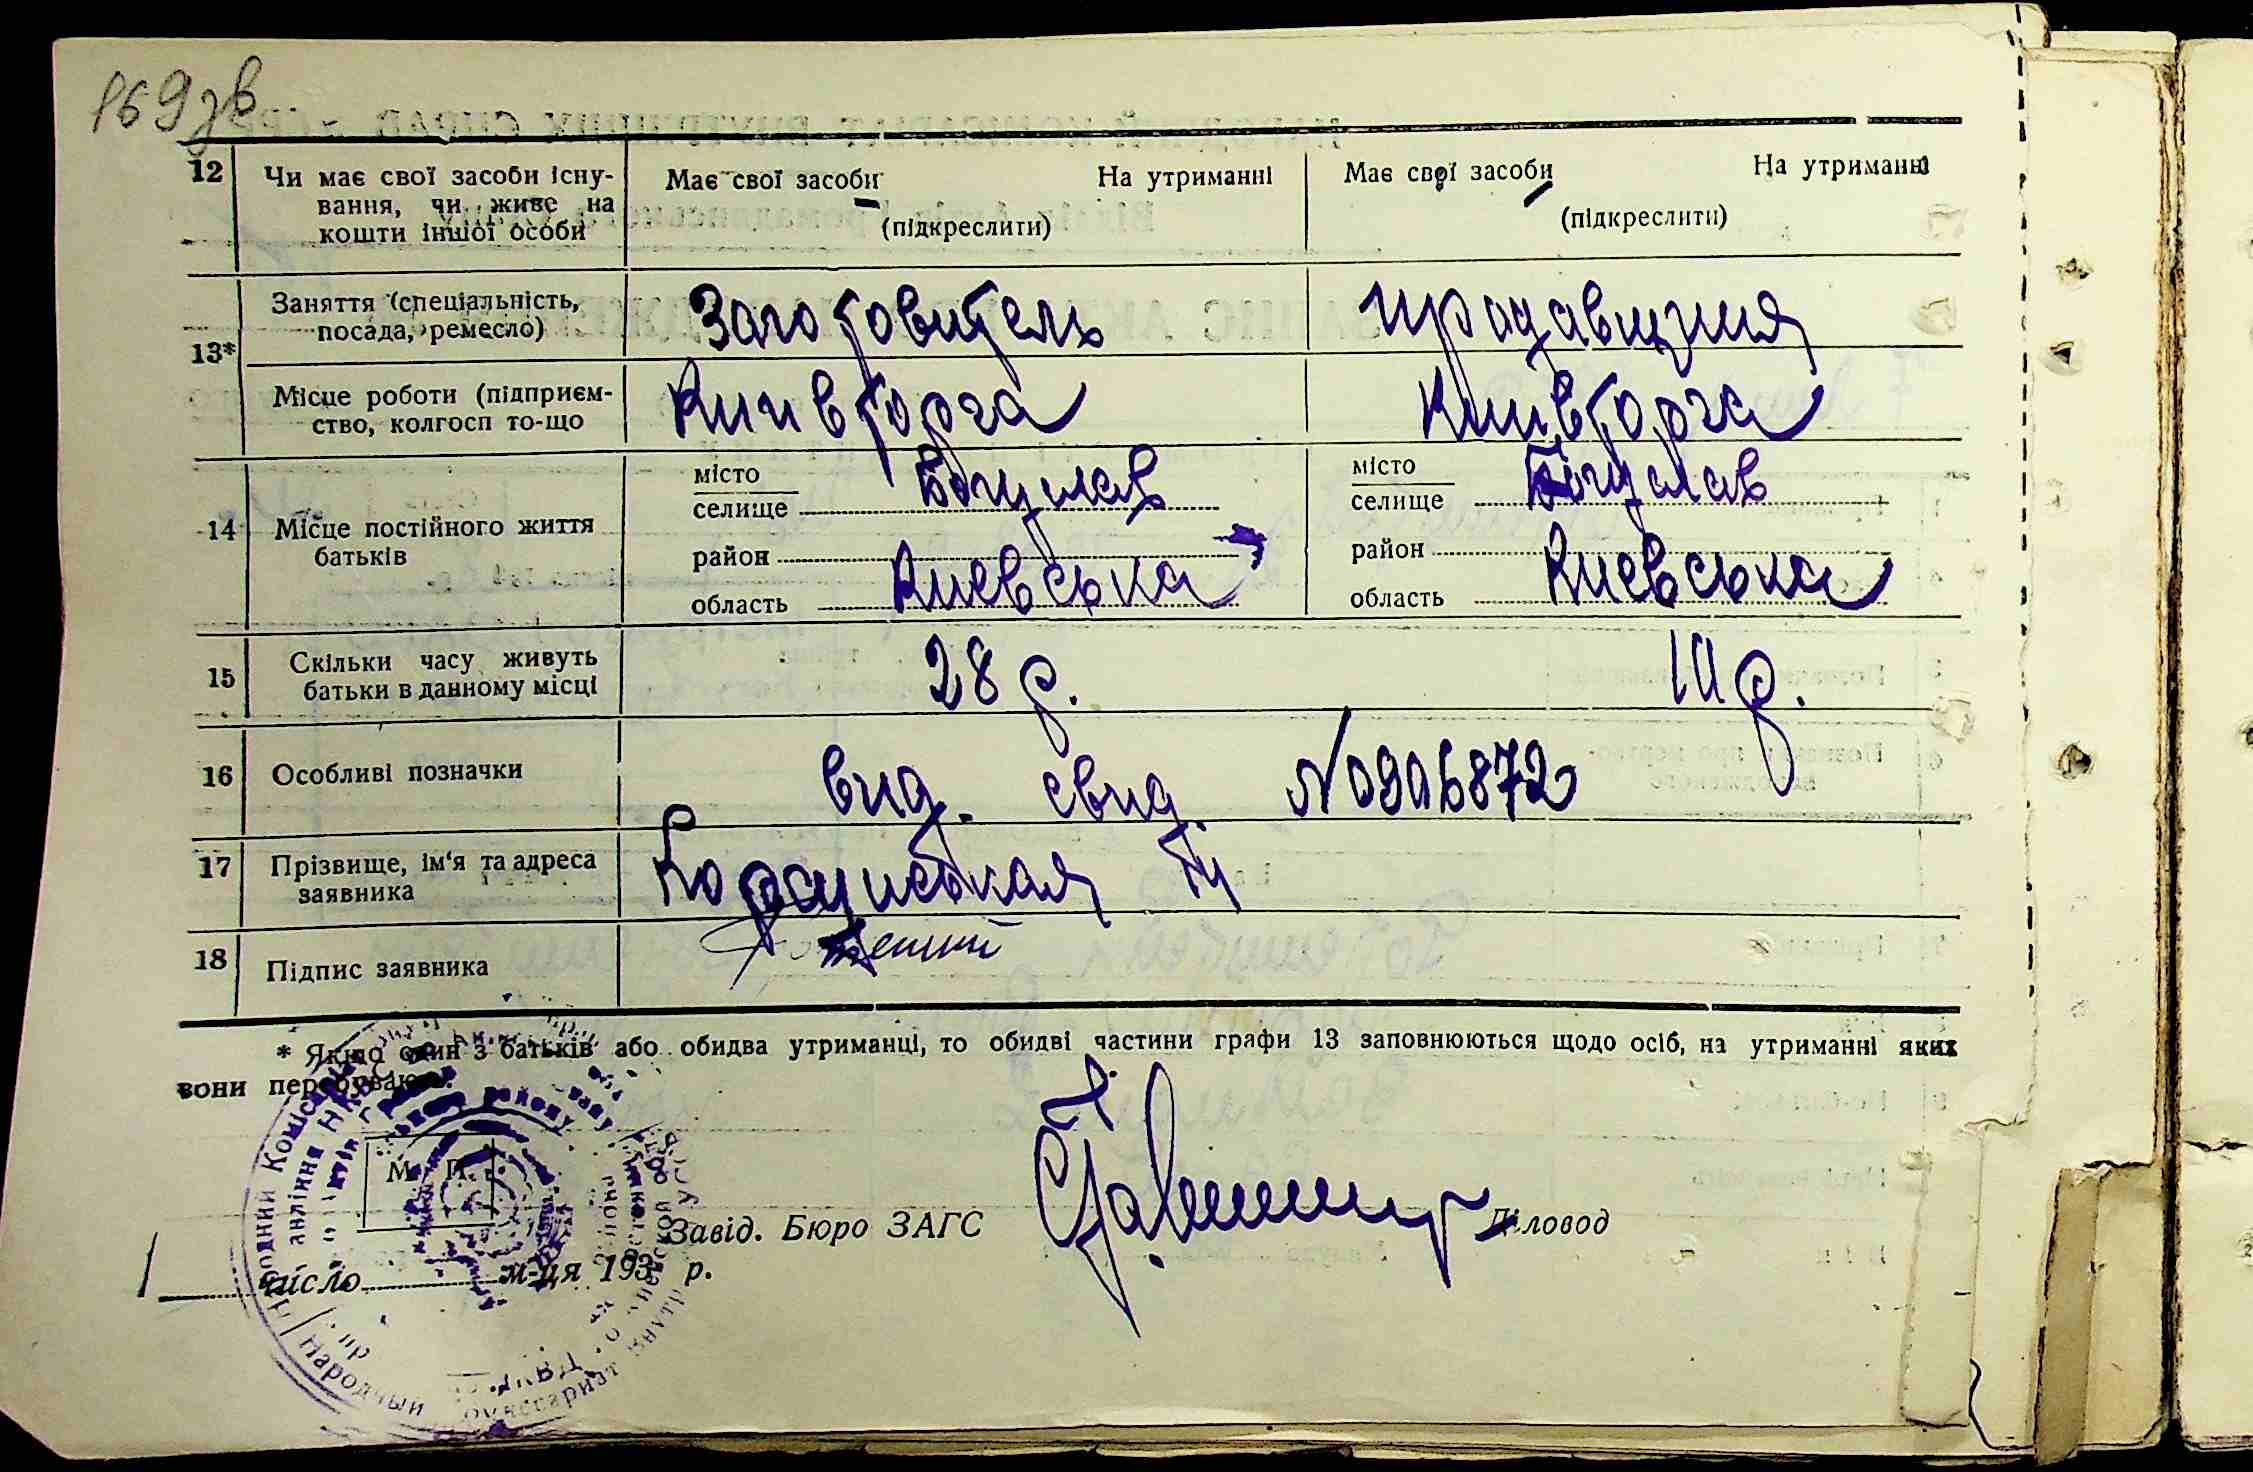 169 зв
12 Чи має свої засоби існу- Має свої засоби На утриманні Має свої засоби На утриманні
вання, чи живе на
кошти іншої особи (підкреслити) (підкреслити)
13* Заняття (спеціальність, Заготовитель продавщиця
посада, ремесло)
Місце роботи (підприєм- Київторга Київторга
ство, колгосп то-що
14 Місце постійного життя
батьків
місто Богуслав місто Богуслав
селище селище
район район
область Киевська область Киевська
15 Скільки часу живуть 28 р. 10 р.
батьки в данному місці
16 Особливі позначки вид. свид. №0906872
17 Прізвище, ім'я та адреса
заявника
18 Підпис заявника
* Якщо один з батьків або обидва утриманці, то обидві частини графи 13 заповнюються щодо осіб, на утриманні яких
вони перебувають.
М. П.
Завід. Бюро ЗАГС Діловод
число м-ця 193 р.
Народний Коміс
Народный